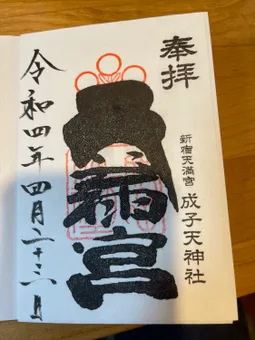 奉拝
新宿天満宮
成子天神社
宮
令和四年四月二十三日